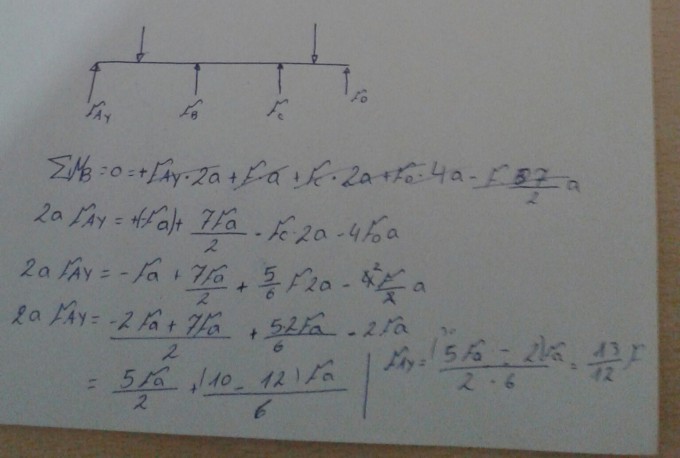 F_Ay F_B F_c F_D
ΣM_B = 0 = + F_Ay · 2a + Fa + F_c · 2a + F_D · 4a - F 7/2 a
2a F_Ay = +(-Fa) + 7Fa/2 - F_c · 2a - 4F_D a
2a F_Ay = -Fa + 7Fa/2 + 5/6 F2a - a
2a F_Ay = (-2Fa + 7Fa)/2 + 52Fa/6 - 2Fa
= 5Fa/2 + (10 - 12)Fa/6
F_Ay = 5Fa - 2)Fa / 2 · 6 = 13/12 F